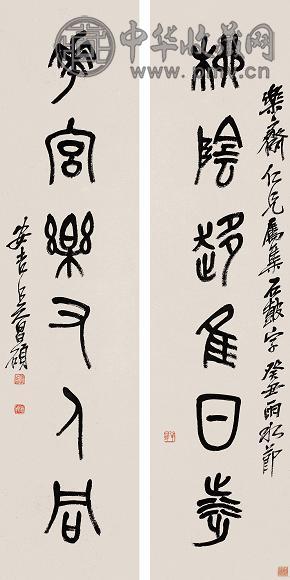 中华收藏网
樂齋仁兄屬集石鼓字癸丑雨水節
柳陰隹日
宮樂又人同
安吉吳昌碩